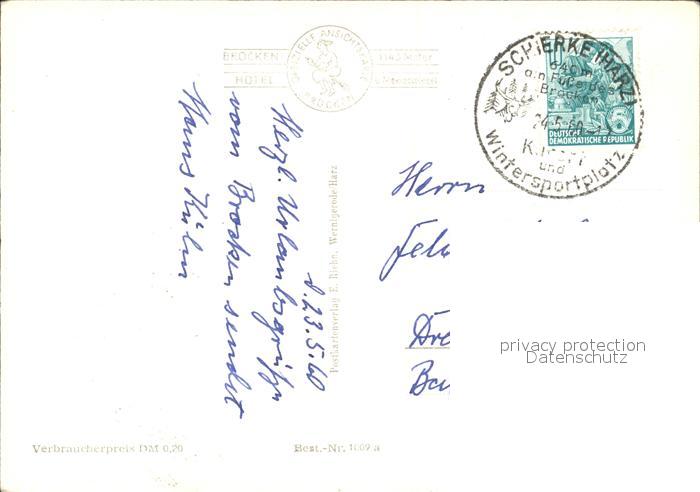 BROCKEN
HOTEL
OFFIZIELLE ANSICHTSKARTE
BROCKEN
1143 Meter
SCHIERKE (HARZ)
640 m
am Fuße des
Brocken
24.5.60
Kurort
und
Wintersportplatz
DEUTSCHE
DEMOKRATISCHE REPUBLIK
6
d. 23.5.60
Herzl. Urlaubsgrüße
vom Brocken sendet
Hans Kühn
Postkartenverlag E. Riehn, Wernigerode/Harz
Herrn
Fel
Dre
Ba
privacy protection
Datenschutz
Verbraucherpreis DM 0,20
Best.-Nr. 1009 a